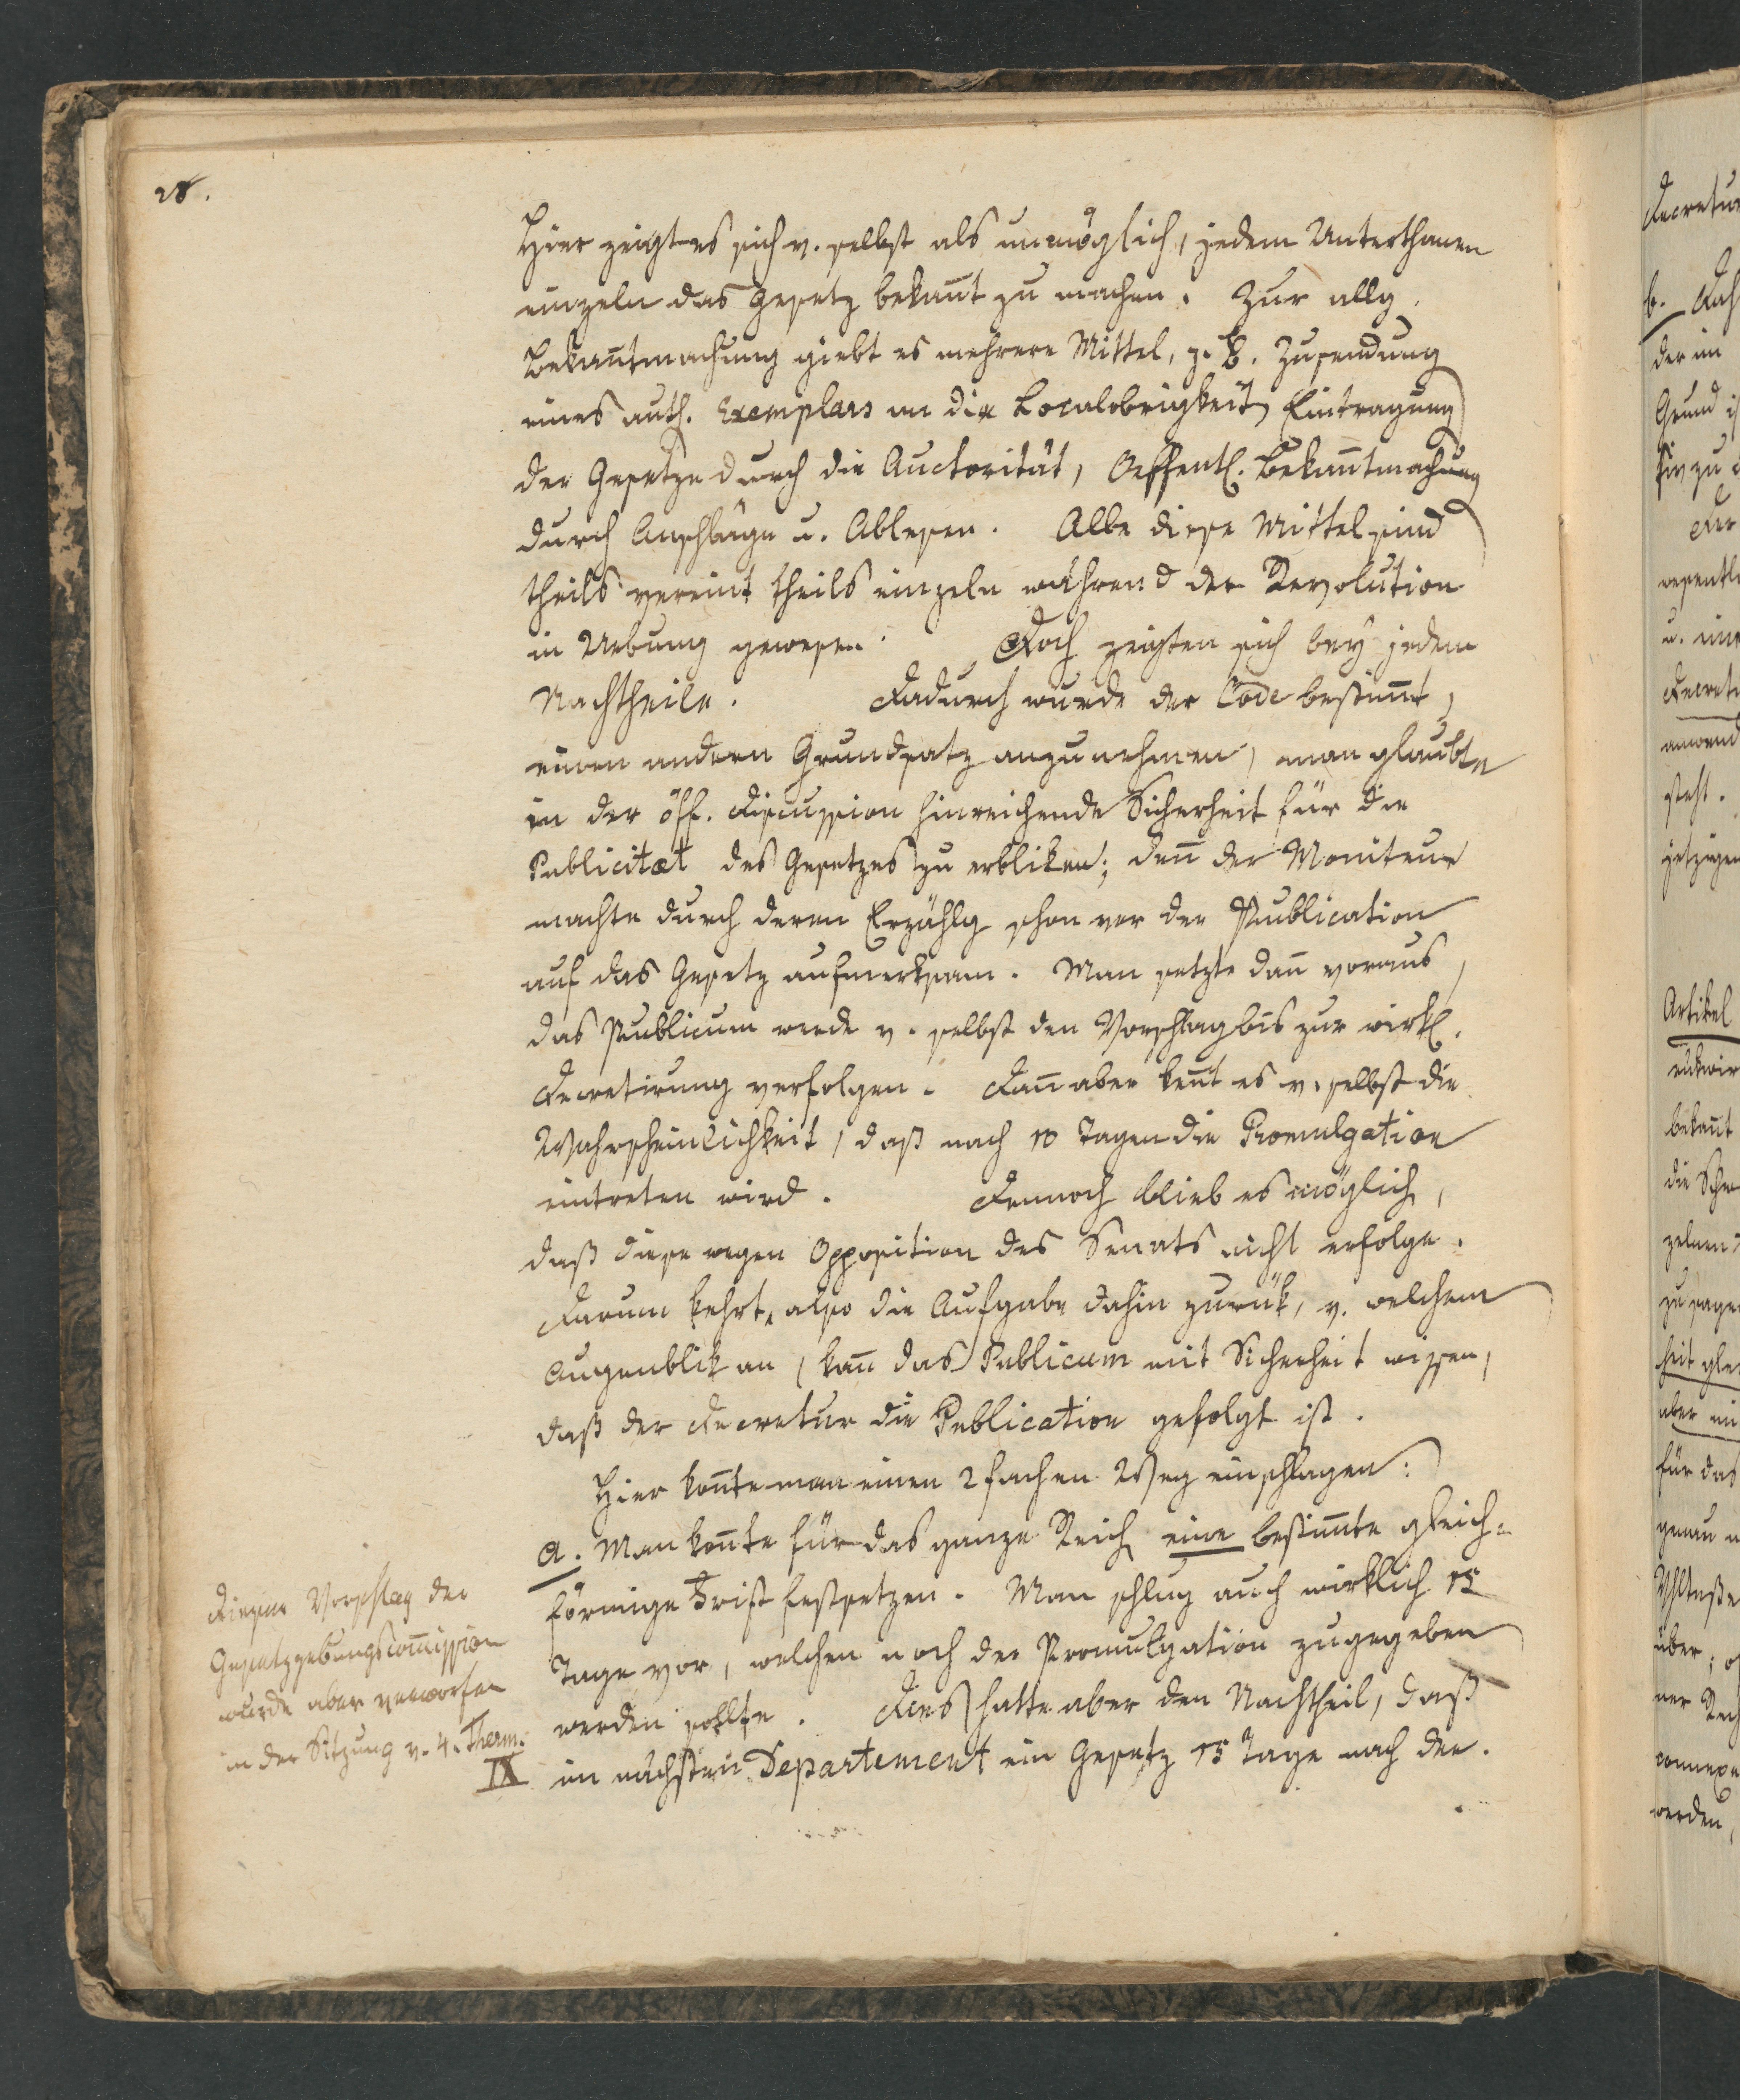 28.
Hier zeigt es sich v. selbst als unmöglich, jedem Unterthanen
einzeln das Gesetz bekan̅t zu machen. Zur allg.
Bekan̅tmachung giebt es mehrere Mittel, z. B. Zusendung
eines auth. Exemplars an die Localobrigkeit, Eintragung
der Gesetze durch die Auctorität, Oeffentl. Bekan̅tmachung
durch Anschläge u. Ablesen. Alle diese Mittel sind
theils vereint theils einzeln während der Revolution
in Uebung gewesen. Doch zeigten sich bey jedem
Nachtheile. Dadurch wurde der Code bestim̅t,
einen andern Grundsatz anzunehmen, man glaubte
in der öff. Discussion hinreichende Sicherheit für die
Publicitæt des Gesetzes zu erbliken; den̅ der Moniteur
machte durch deren Erzählg schon vor der Publication
auf das Gesetz aufmerksam. Man setzte dan̅ voraus,
das Publicum werde v. selbst den Vorschlag bis zur wirkl.
Decretirung verfolgen. Dan̅ aber ken̅t es v. selbst die
Wahrscheinlichkeit, daß nach 10 Tagen die Promulgation
eintreten wird. Dennoch blieb es möglich,
daß diese wegen Opposition des Senats nicht erfolge.
Darum kehrte also die Aufgabe dahin zurük, v. welchem
Augenblik an, kan̅ das Publicum mit Sicherheit wissen,
daß der Decretur die Publication gefolgt ist.
Hier kon̅te man einen 2fachen Weg einschlagen:
a. Man kon̅te für das ganze Reich eine bestim̅te gleich-
förmige Frist festsetzen. Man schlug auch wirklich 15
Tage vor, welchen nach der Promulgation zugegeben
werden sollte. Dies hatte aber den Nachtheil, daß
im nächsten Departement ein Gesetz 15 Tage nach der.
Dieser Vorschlag der
Gesetzgebungscom̅ission
wurde aber verworfen
in der Sitzung v. 4. Therm.
IX
Decretur
b.
der im
Grund
wesentli
Decret
anwend
steht.
jetzigen
Artikel
bekan̅t
zu sagen
aber
für das
genau
über;
werden,